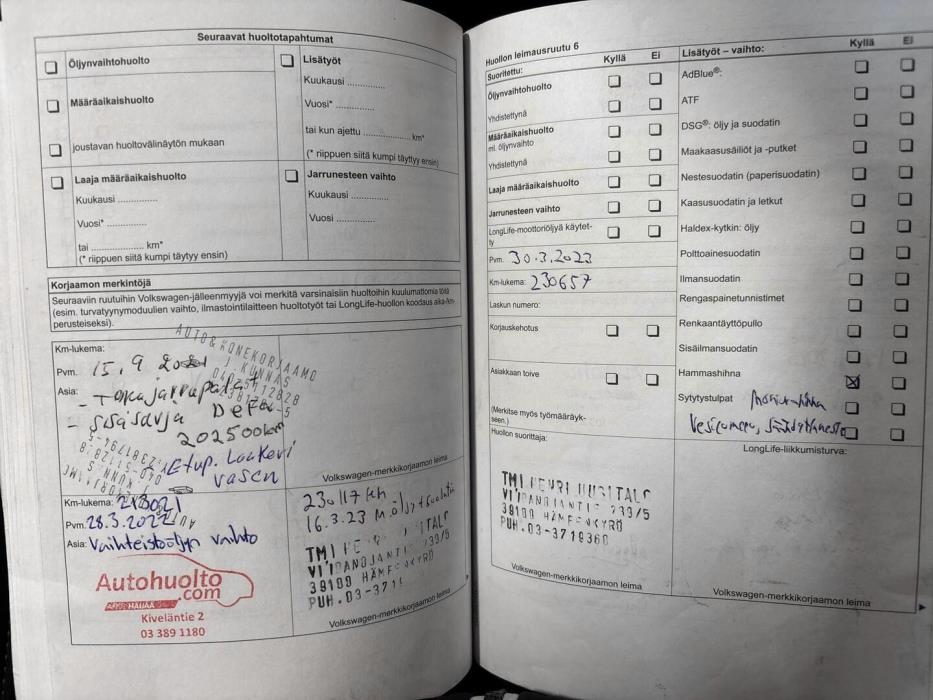 Seuraavat huoltotapahtumat
Öljynvaihtohuolto
Määräaikaishuolto
joustavan huoltovälinäytön mukaan
Lisätyöt
Kuukausi ..............
Vuosi* ..............
tai kun ajettu ................ km*
(* riippuen siitä kumpi täyttyy ensin)
Laaja määräaikaishuolto
Kuukausi ..............
Vuosi* ..............
tai .................. km*
(* riippuen siitä kumpi täyttyy ensin)
Jarrunesteen vaihto
Kuukausi ..............
Vuosi ..............
Korjaamon merkintöjä
Seuraaviin ruutuihin Volkswagen-jälleenmyyjä voi merkitä varsinaisiin huoltoihin kuulumattomia töitä
(esim. turvatyynymoduulien vaihto, ilmastointilaitteen huoltotyöt tai LongLife-huollon koodaus aika-/km-
perusteiseksi).
Km-lukema:
Pvm. 15.9 2021
Asia:
- Takajarrupalat
- sisäsarja
202500km
Etup. Laakeri
vasen
AUTO&KONEKORJAAMO
J KUNNAS
Volkswagen-merkkikorjaamon leima
Km-lukema: 213021
Pvm. 28.3.2022
Asia: Vaihteistoöljyn vaihto
Autohuolto
.com
HAUAA
Kiveläntie 2
03 389 1180
230117 km
16.3.23 M.öljy+suodatin
TMI
39100 HÄMEENKYRÖ
Volkswagen-merkkikorjaamon leima
Huollon leimausruutu 6
Suoritettu: Kyllä Ei
Öljynvaihtohuolto
Yhdistettynä
Määräaikaishuolto
ml. öljynvaihto
Yhdistettynä
Laaja määräaikaishuolto
Jarrunesteen vaihto
LongLife-moottoriöljyä käytet-
ty
Pvm. 30.3.2023
Km-lukema: 230657
Laskun numero:
Korjauskehotus
Asiakkaan toive
(Merkitse myös työmääräyk-
seen.)
Huollon suorittaja:
TMI HENRI HUSITALO
39100 HÄMEENKYRÖ
PUH.03-3719360
Volkswagen-merkkikorjaamon leima
Lisätyöt – vaihto: Kyllä Ei
AdBlue®:
ATF
DSG®: öljy ja suodatin
Maakaasusäiliöt ja -putket
Nestesuodatin (paperisuodatin)
Kaasusuodatin ja letkut
Haldex-kytkin: öljy
Polttoainesuodatin
Ilmansuodatin
Rengaspainetunnistimet
Renkaantäyttöpullo
Sisäilmansuodatin
Hammashihna
Sytytystulpat Moniurahihna
Vesipumppu, jäähdytinneste
LongLife-liikkumisturva:
Volkswagen-merkkikorjaamon leima